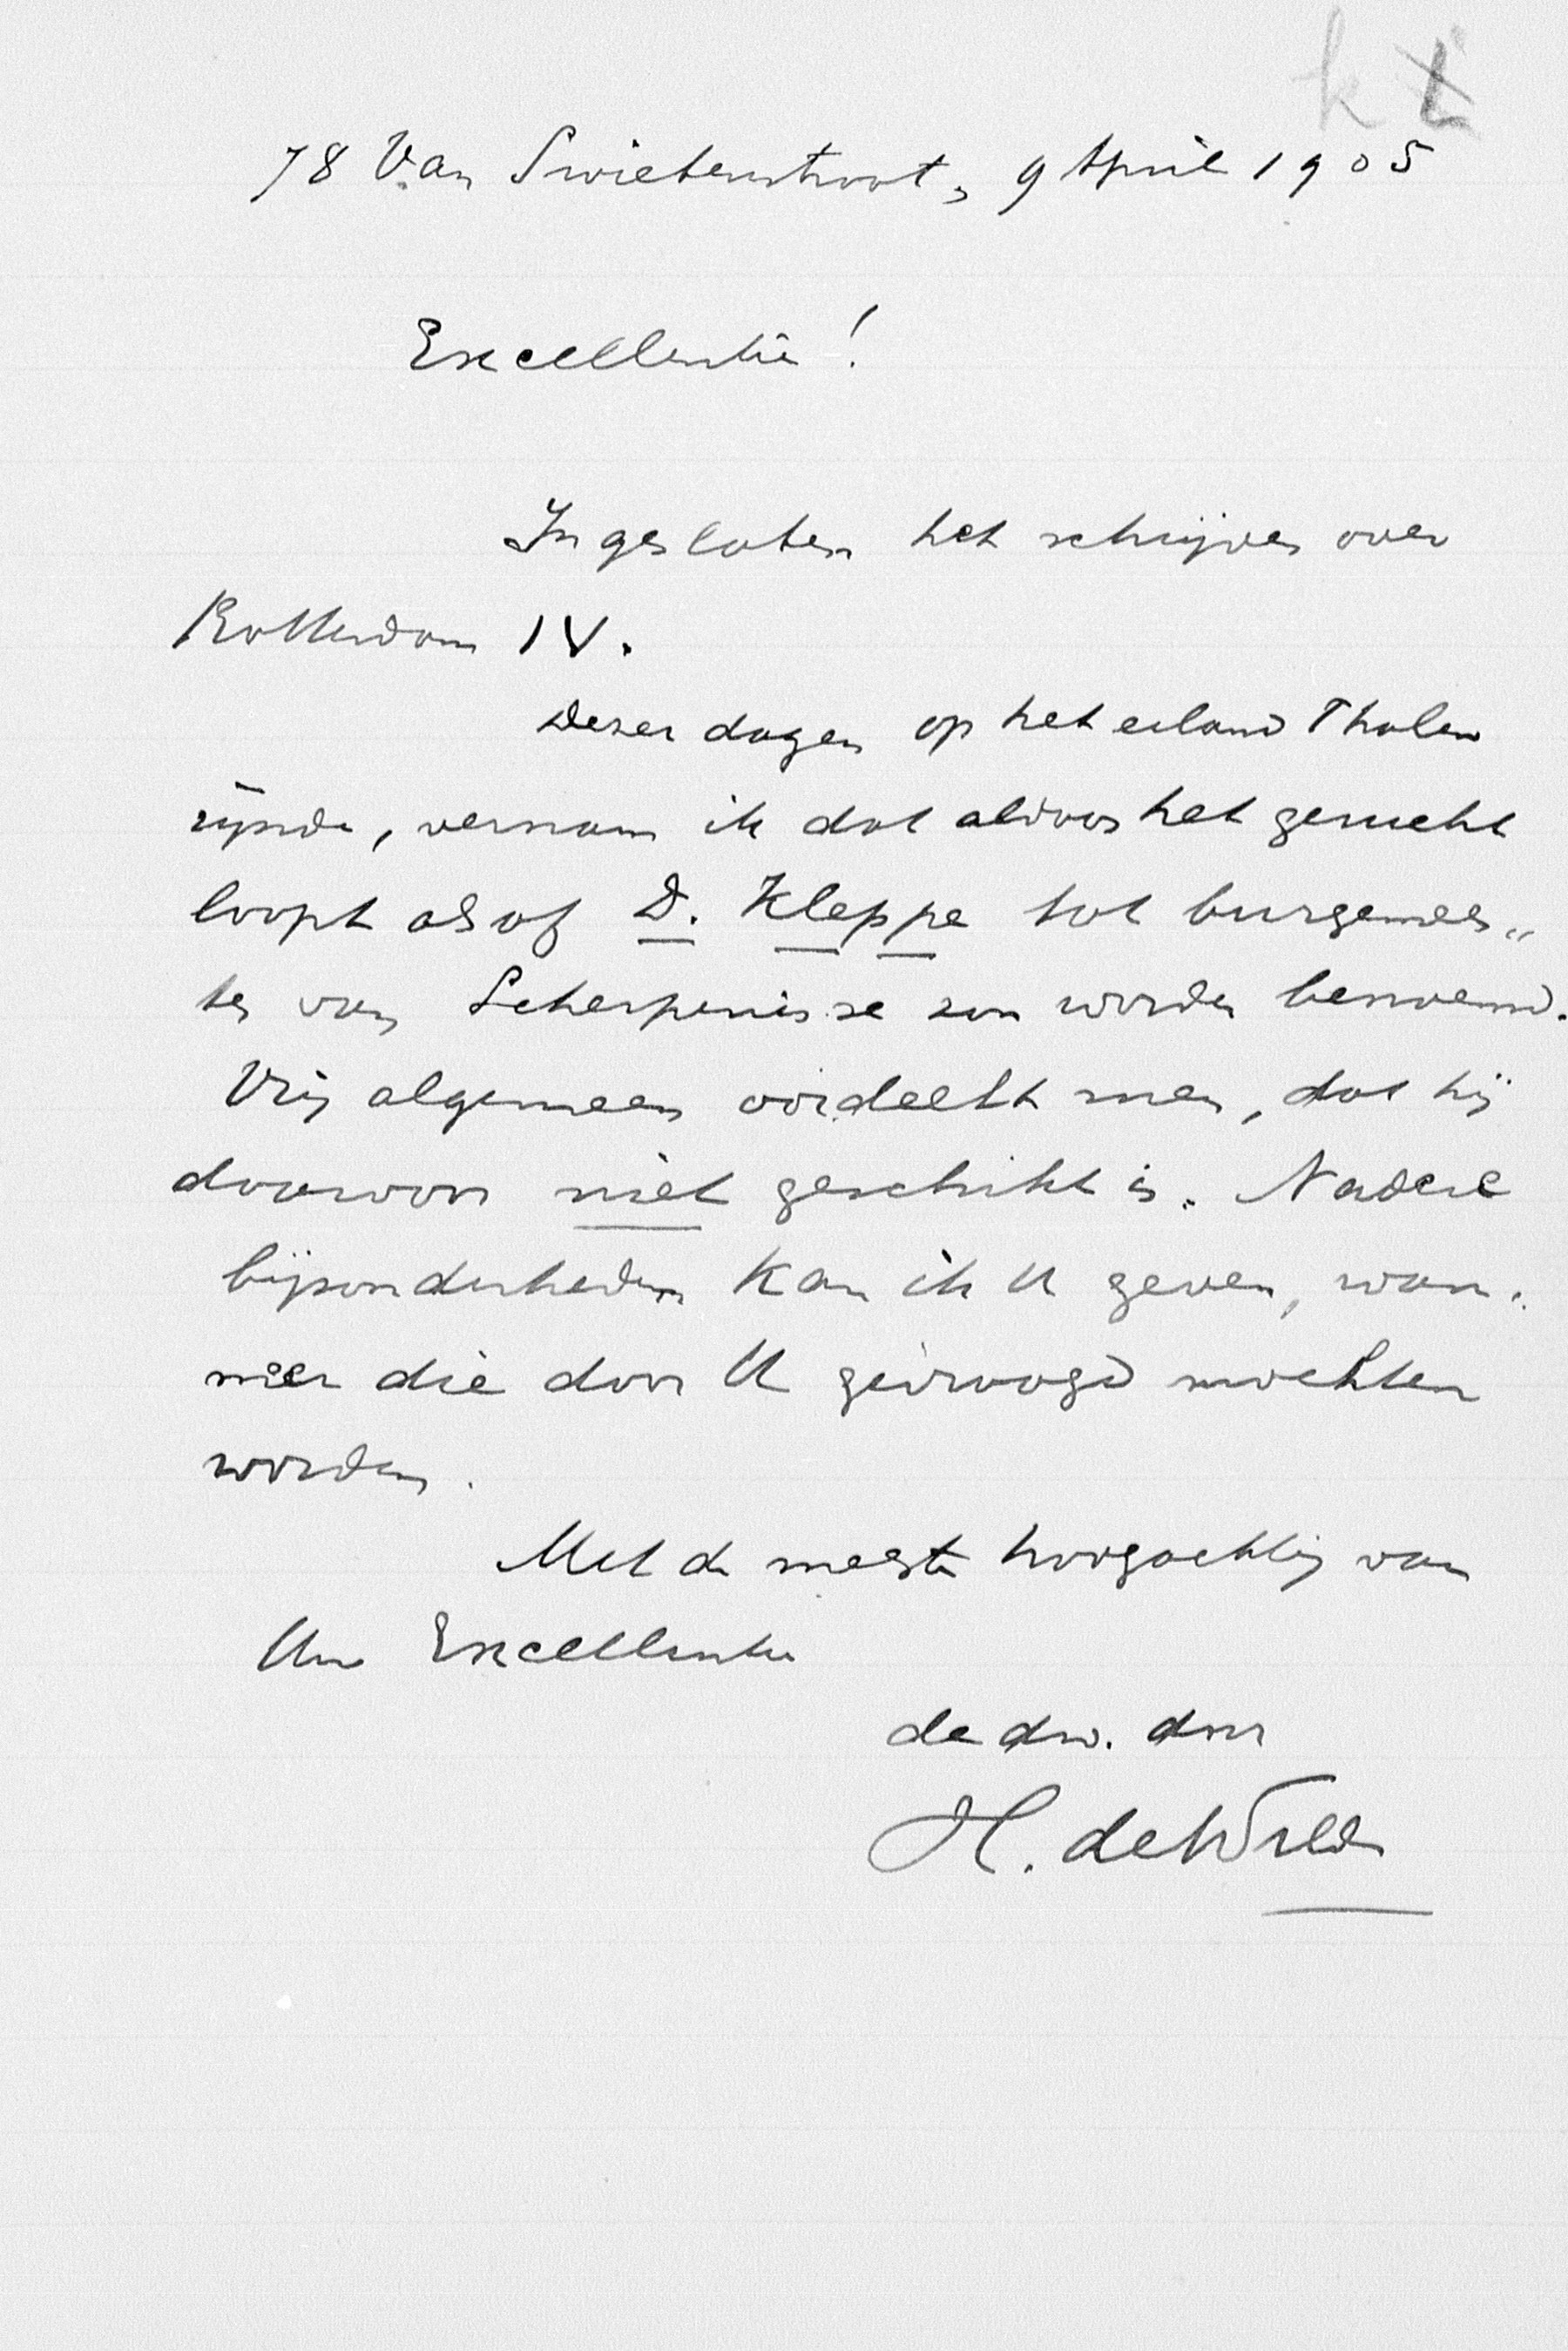 78 Van Swietenstraat, 9 April 1905
Excellentie!
Ingesloten het schrijven over
Rotterdam IV.
Dezer dagen op het eiland Tholen
zijnde, vernam ik dat aldaar het gerucht
loopt alsof D. Kleppe tot burgemees„
ter van Scherpenisse zou worden benoemd.
Vrij algemeen oordeelt men, dat hij
daarvoor niet geschikt is. Nadere
bijzonderheden kan ik U geven, wan„
neer die door U gevraagd mochten
worden.
Met de meeste hoogachting van
Uw Excellentie
de dw. dnr
H. de Wilde